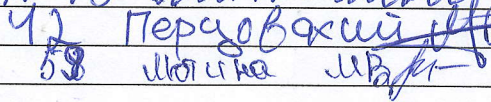 42 Перцовский
58 Мотина МВ